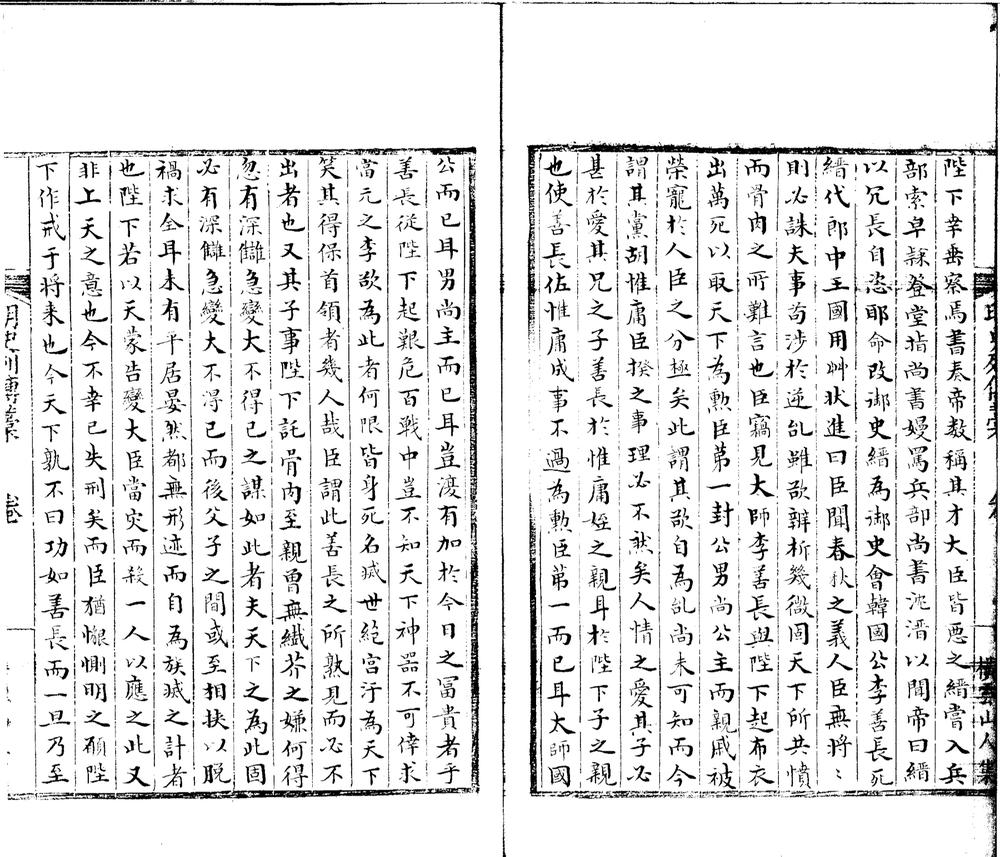 陛下幸垂察焉書奏帝數稱其才大臣皆惡之縉嘗入兵
部索皁隸登堂指尚書嫚罵兵部尚書沈溍以聞帝曰縉
以冗長自恣耶命改御史縉為御史會韓國公李善長死
縉代郎中王國用艸狀進曰臣聞春秋之義人臣無將〻
則必誅夫事苟涉於逆乱雖欲辯析幾微固天下所共憤
而骨肉之所難言也臣竊見大師李善長與陛下起布衣
出萬死以取天下為勳臣苐一封公男尚公主而親戚被
榮寵於人臣之分極矣此謂其欲自為乱尚未可知而今
謂其黨胡惟庸臣揆之事理必不然矣人情之愛其子必
甚於愛其兄之子善長於惟庸姪之親耳於陛下子之親
也使善長佐惟庸成事不過為勳臣苐一而已耳太師國
公而已耳男尚主而已耳豈復有加於今日之富貴者乎
善長從陛下起艱危百戰中豈不知天下神器不可倖求
當元之季欲為此者何限皆身死名滅世絕宮汙為天下
笑其得保首領者幾人哉臣謂此善長之所熟見而必不
出者也又其子事陛下託骨肉至親曾無纖芥之嫌何得
忽有深讎急變大不得已之謀如此者夫天下之為此固
必有深讎急變大不得已而後父子之間或至相挾以脫
禍求全耳未有平居晏然都無形迹而自為族滅之計者
也陛下若以天蒙告變大臣當灾而殺一人以應之此又
非上天之意也今不幸已失刑矣而臣猶懇惻明之願陛
下作戒于將来也今天下孰不曰功如善長而一旦乃至
明史列傳藁
卷
橫雲山人集